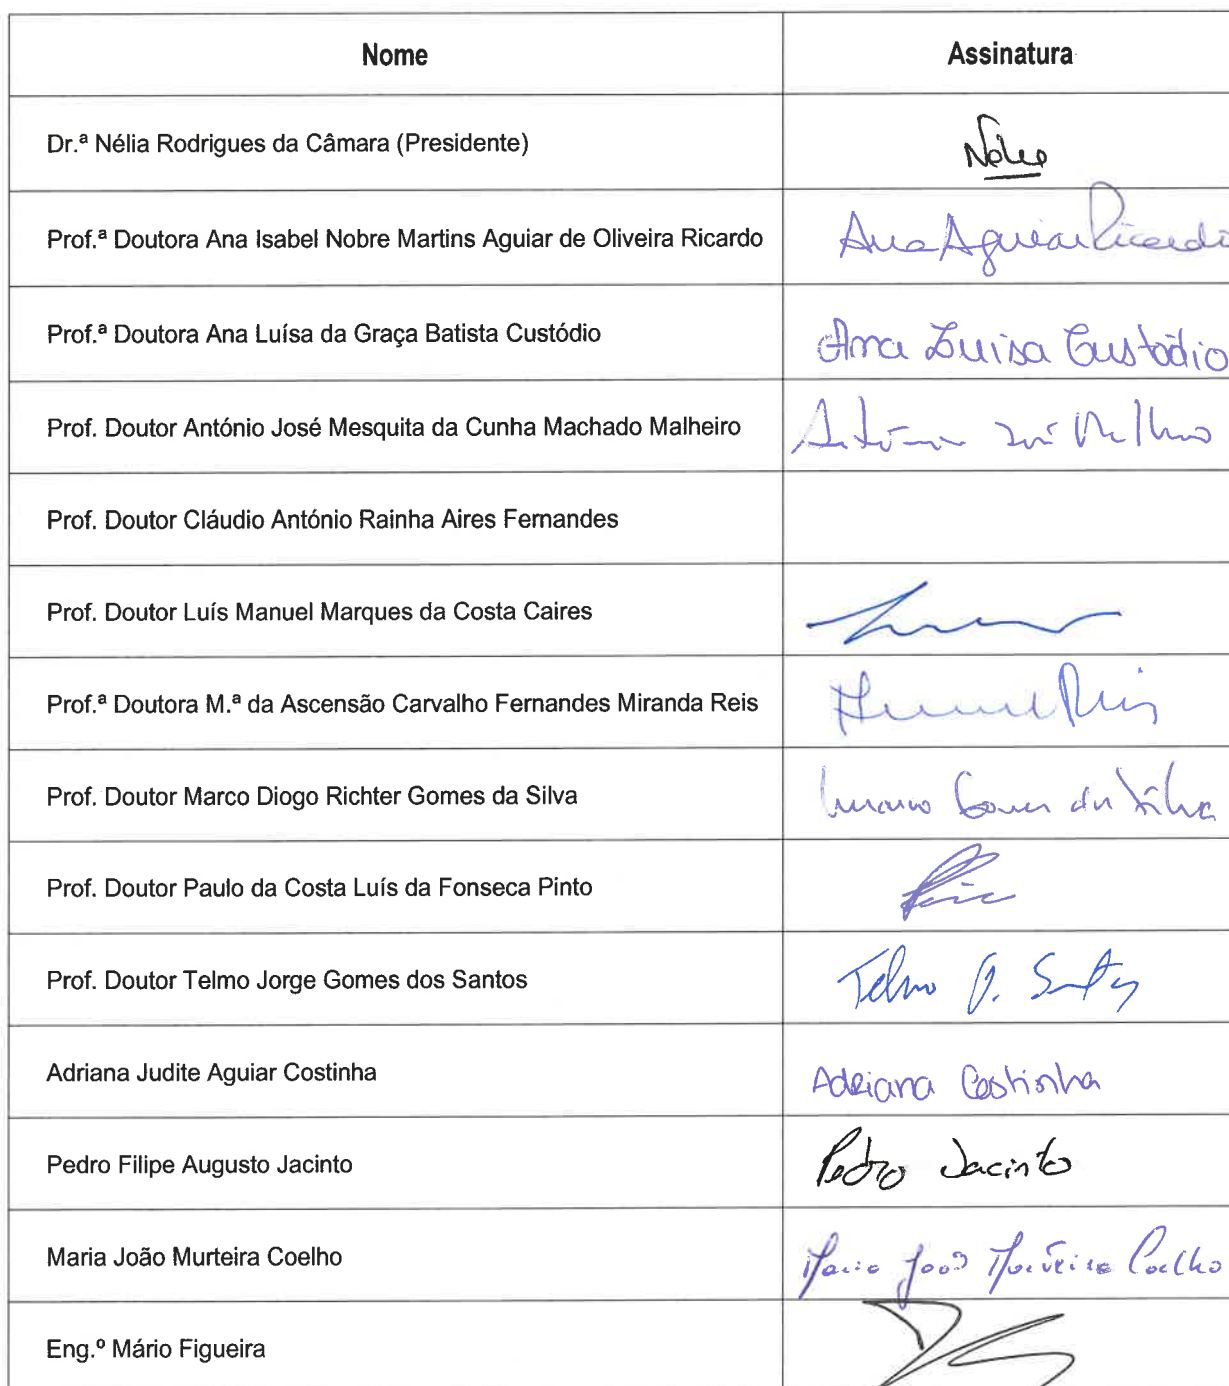 Nome Assinatura
Dr.ª Nélia Rodrigues da Câmara (Presidente) Nélia
Prof.ª Doutora Ana Isabel Nobre Martins Aguiar de Oliveira Ricardo Ana Aguiar Ricardo
Prof.ª Doutora Ana Luísa da Graça Batista Custódio Ana Luísa Custódio
Prof. Doutor António José Mesquita da Cunha Machado Malheiro António José Malheiro
Prof. Doutor Cláudio António Rainha Aires Fernandes
Prof. Doutor Luís Manuel Marques da Costa Caires
Prof.ª Doutora M.ª da Ascensão Carvalho Fernandes Miranda Reis Reis
Prof. Doutor Marco Diogo Richter Gomes da Silva Marco Gomes da Silva
Prof. Doutor Paulo da Costa Luís da Fonseca Pinto
Prof. Doutor Telmo Jorge Gomes dos Santos Telmo J. Santos
Adriana Judite Aguiar Costinha Adriana Costinha
Pedro Filipe Augusto Jacinto Pedro Jacinto
Maria João Murteira Coelho Maria João Murteira Coelho
Eng.º Mário Figueira